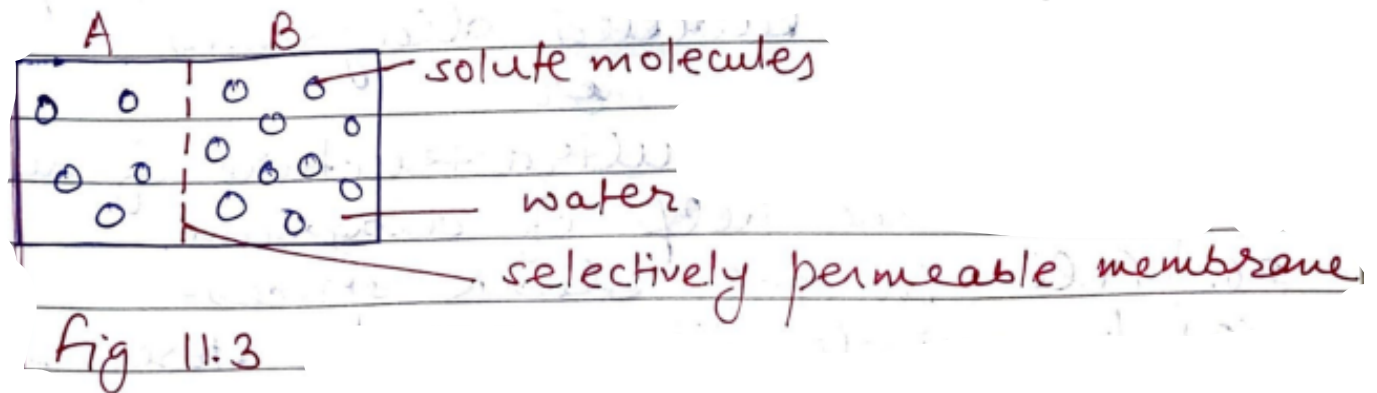 A B
solute molecules
water.
selectively permeable membrane.
fig 11.3